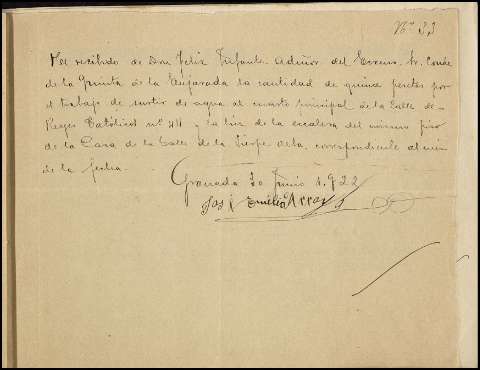 Nº 33
He recibido de Don Felix Infante Admor del Excmo. Sr. Conde
de la Quinta de la Enjarada la cantidad de quince pesetas por
el trabajo de surtir de agua al cuarto principal de la Calle de
Reyes Católicos nº 44 y la luz de la escalera del mismo piso
de la Casa de la Calle de la Sierpe Alta, correspondiente al mes
de la fecha.
Granada 30 Junio 1.922
José Emilio